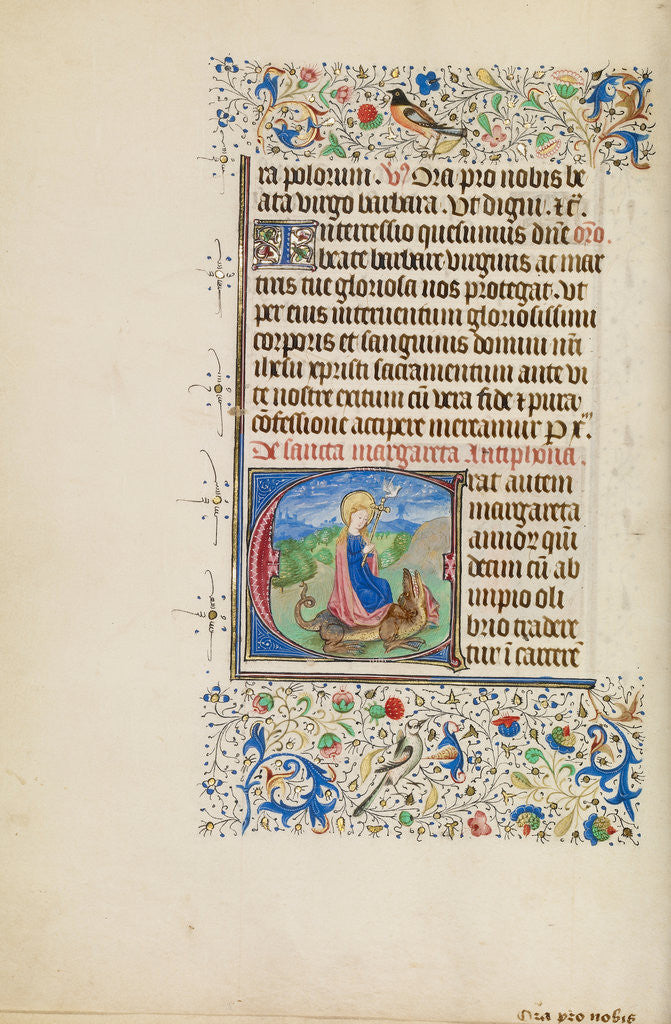 ra polorum. V Ora pro nobis be
ata virgo barbara. Vt digni. ⁊ c̄.
Intercessio quesumus dn̄e oro.
beate barbare virginis ac mar
tiris tue gloriosa nos protegat. Vt
per eius interuentum gloriosissimi
corporis et sanguinis domini nr̄i
ihesu xpristi sacramentum ante vi
te nostre exitum cū vera fide ⁊ pura
cōfessione accipere mereamur P xp̄m.
De sancta margareta Antiphona.
Erat autem
margareta
annoꝝ quī
decim cū ab
impio oli
brio tradere
tur ī carcerē
Ora pro nobis